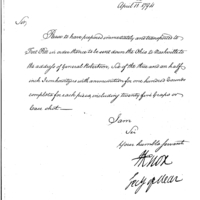 April 11th 1794
Sir,
Please to have prepared immediately and transported to
Fort Pitt in order thence to be sent down the Ohio to
the address of General Robertson, Six of the two and an half
inch Iron howitzers with ammunition for one hundred rounds
complete for each piece, including twenty five Grape or
Case shot.
I am
Sir
Your humble Servant
H Knox
Secy of War